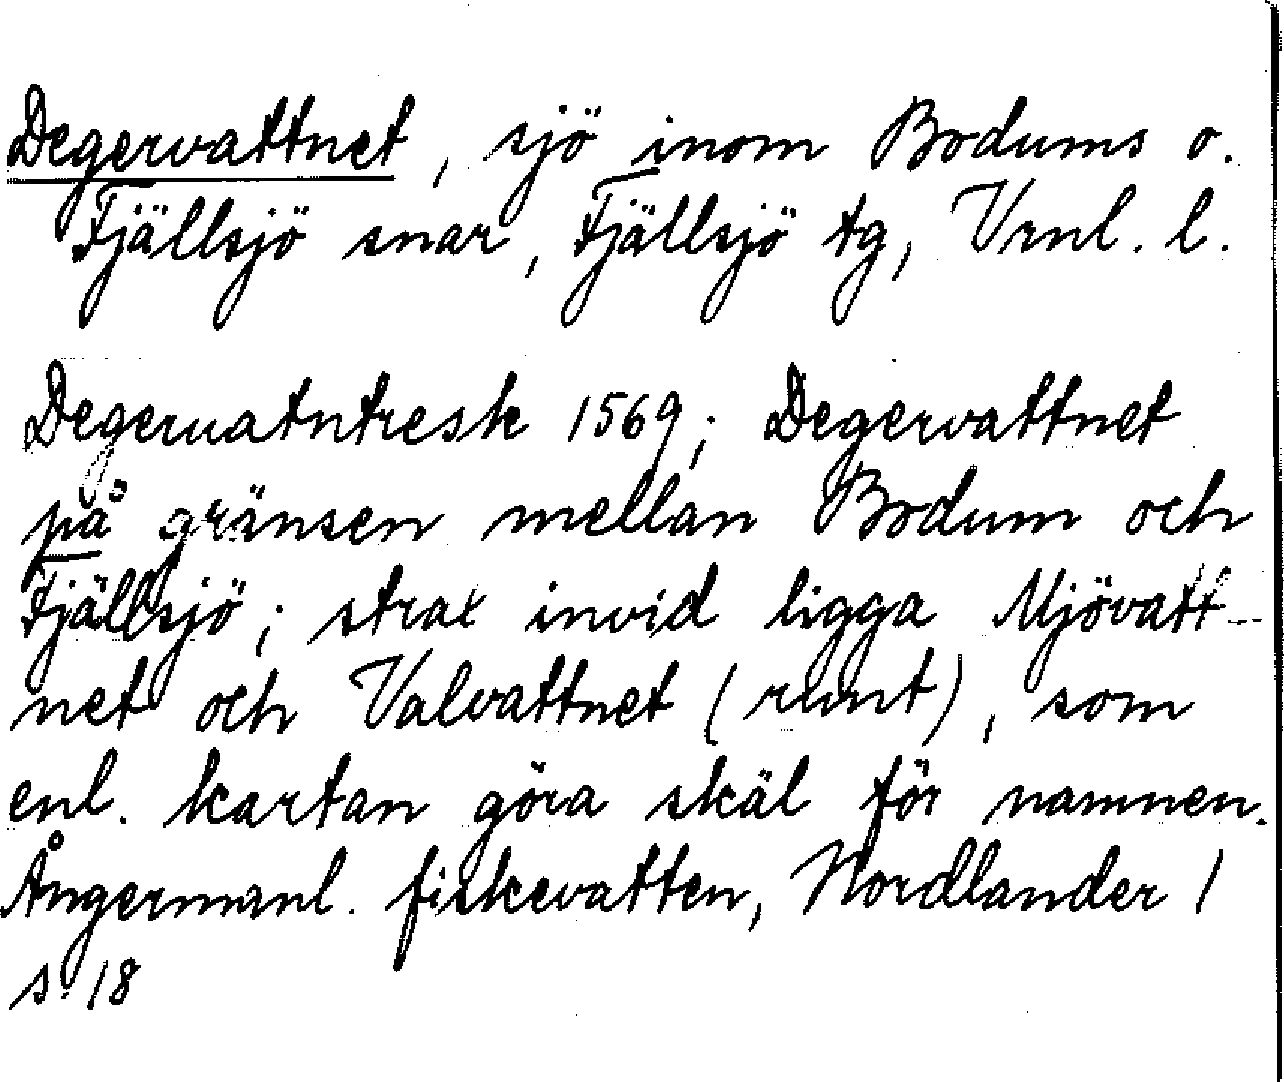 Degervattnet, sjö inom Bodums o.
Fjällsjö snar, Fjällsjö tg, Vrnl. l.
Degeruatntresk 1569; Degervattnet
på gränsen mellan Bodum och
Fjällsjö; strax invid ligga Mjövatt-
net och Valvattnet (runt), som
enl. kartan göra skäl för namnen.
Ångermanl. fiskevatten, Nordlander 1
s. 18